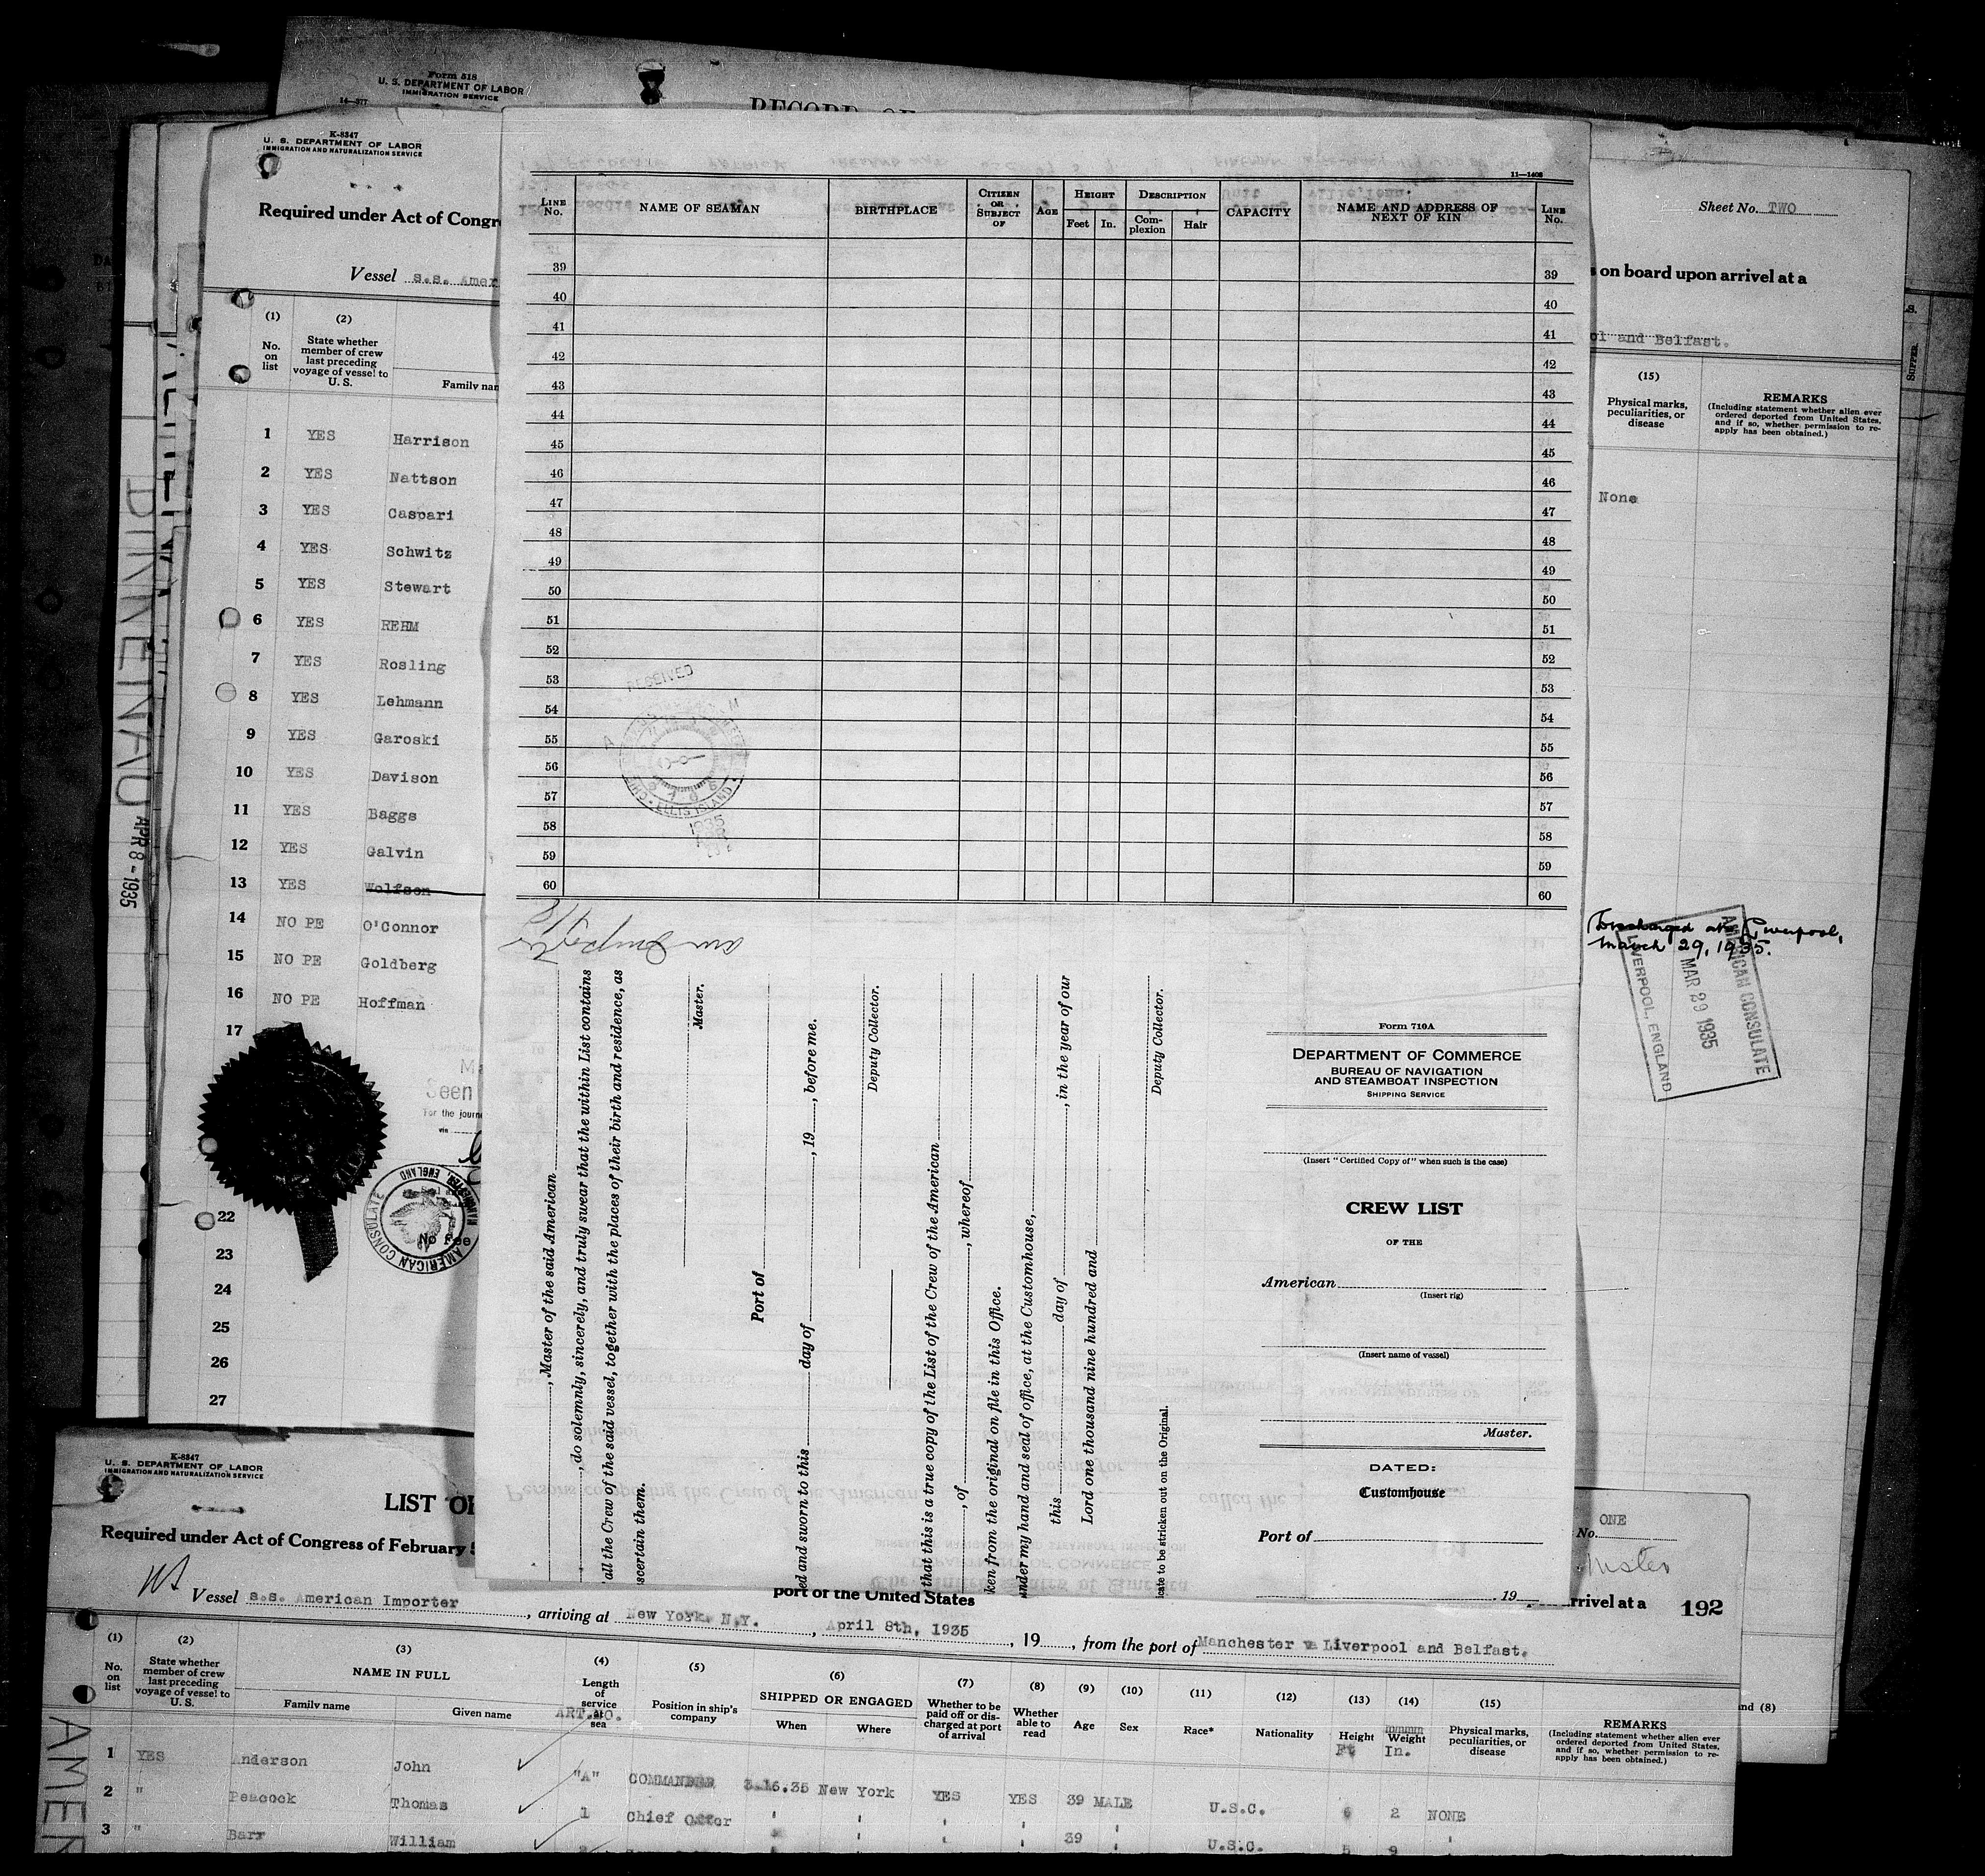 Form 518
U. S. DEPARTMENT OF LABOR
IMMIGRATION SERVICE
14—377
RECORD OF
K-8347
U. S. DEPARTMENT OF LABOR
IMMIGRATION AND NATURALIZATION SERVICE
Required under Act of Congr
Vessel s.s. Amer
(1) (2)
No. on list
State whether member of crew last preceding voyage of vessel to U. S.
Family nam
1 YES Harrison
2 YES Nattson
3 YES Caspari
4 YES Schwitz
5 YES Stewart
6 YES REHM
7 YES Rosling
8 YES Lehmann
9 YES Garoski
10 YES Davison
11 YES Baggs
12 YES Galvin
13 YES Wolfson
14 NO PE O'Connor
15 NO PE Goldberg
16 NO PE Hoffman
17
22
23
24
25
26
27
Seen
For the journ
via
AMERICAN CONSULATE
MANCHESTER, ENGLAND
No Fee
APR 8 - 1935
11—1408
LINE No.
NAME OF SEAMAN
BIRTHPLACE
CITIZEN OR SUBJECT OF
AGE
HEIGHT
Feet In.
DESCRIPTION
Complexion Hair
CAPACITY
NAME AND ADDRESS OF NEXT OF KIN
LINE No.
39 39
40 40
41 41
42 42
43 43
44 44
45 45
46 46
47 47
48 48
49 49
50 50
51 51
52 52
53 53
54 54
55 55
56 56
57 57
58 58
59 59
60 60
RECEIVED
ELLIS ISLAND
1935
, Master of the said American
, do solemnly, sincerely, and truly swear that the within List contains
all the Crew of the said vessel, together with the places of their birth and residence, as
scertain them.
Master.
Port of
ed and sworn to this day of , 19 , before me.
Deputy Collector.
that this is a true copy of the List of the Crew of the American
, of , whereof
ken from the original on file in this Office.
nder my hand and seal of office, at the Customhouse,
this day of , in the year of our
Lord one thousand nine hundred and
Deputy Collector.
cate to be stricken out on the Original.
Form 710A
DEPARTMENT OF COMMERCE
BUREAU OF NAVIGATION
AND STEAMBOAT INSPECTION
SHIPPING SERVICE
(Insert "Certified Copy of" when such is the case)
CREW LIST
OF THE
American
(Insert rig)
(Insert name of vessel)
Master.
DATED:
Customhouse
Port of
, 19
Sheet No. TWO
s on board upon arrival at a
ol and Belfast.
(15)
Physical marks, peculiarities, or disease
REMARKS
(Including statement whether alien ever ordered deported from United States, and if so, whether permission to re-apply has been obtained.)
None
Discharged at Liverpool,
March 29, 1935.
AMERICAN CONSULATE
MAR 29 1935
LIVERPOOL, ENGLAND
K-8347
U. S. DEPARTMENT OF LABOR
IMMIGRATION AND NATURALIZATION SERVICE
LIST OF
Required under Act of Congress of February 5
port of the United States
No. ONE
rrivel at a
192
nd (8)
Vessel s.s. American Importer , arriving at New York. N.Y. , April 8th, 1935 , 19 , from the port of Manchester via Liverpool and Belfast.
(1) (2) (3) (4) (5) (6) (7) (8) (9) (10) (11) (12) (13) (14) (15)
No. on list
State whether member of crew last preceding voyage of vessel to U. S.
NAME IN FULL
Family name
Given name
Length of service at sea
ART.NO.
Position in ship's company
SHIPPED OR ENGAGED
When
Where
Whether to be paid off or discharged at port of arrival
Whether able to read
Age
Sex
Race*
Nationality
Height
Weight
Ft In.
Physical marks, peculiarities, or disease
REMARKS
(Including statement whether alien ever ordered deported from United States, and if so, whether permission to re-apply has been obtained.)
1 YES Anderson John "A" COMMANDER 3.16.35 New York YES YES 39 MALE U.S.C. 6 2 NONE
2 " Peacock Thomas 1 Chief Offcer 39 U.S.C. 5 9
3 " Barr William
AMER